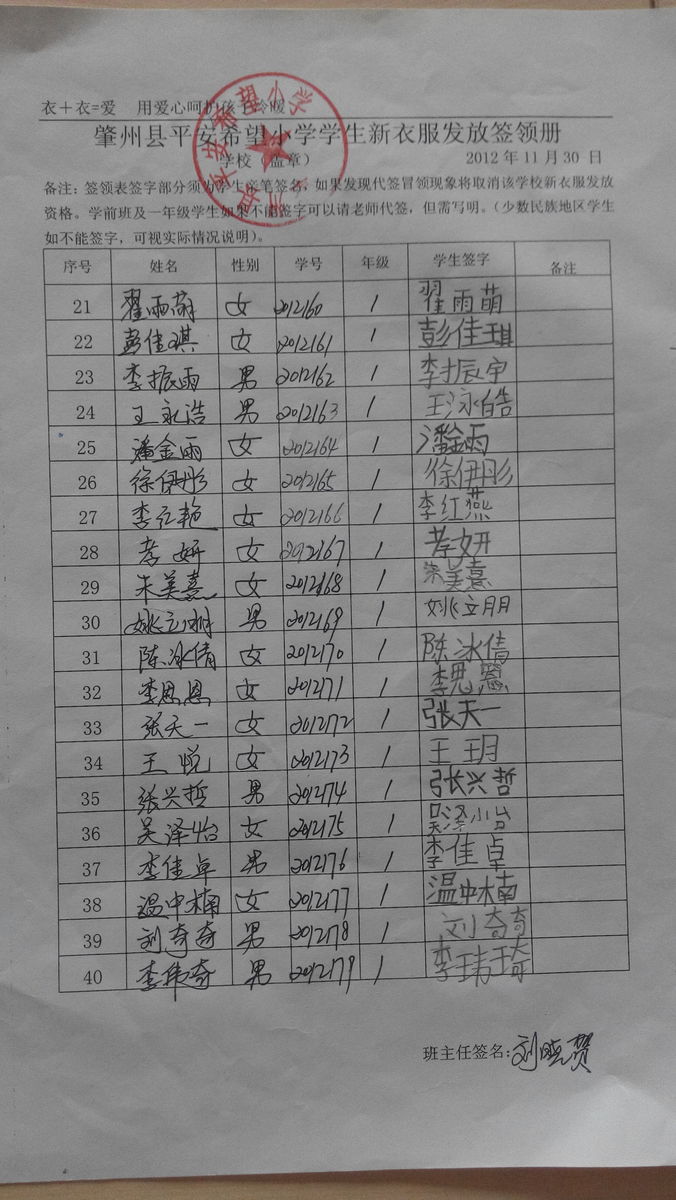 衣+衣=爱 用爱心呵护孩子冷暖
肇州县平安希望小学学生新衣服发放签领册
学校（盖章） 2012年11月30日
备注：签领表签字部分须为学生亲笔签名，如果发现代签冒领现象将取消该学校新衣服发放
资格。学前班及一年级学生如果不能签字可以请老师代签，但需写明。（少数民族地区学生
如不能签字，可视实际情况说明）。
序号 姓名 性别 学号 年级 学生签字 备注
21 翟雨萌 女 2012160 1 翟雨萌
22 彭佳琪 女 2012161 1 彭佳琪
23 李振雨 男 2012162 1 李振宇
24 王永浩 男 2012163 1 王泳皓
25 潘金雨 女 2012164 1 潘金雨
26 徐伊彤 女 2012165 1 徐伊彤
27 李红艳 女 2012166 1 李红燕
28 李妍 女 2012167 1 李妍
29 朱美熹 女 2012168 1 朱美熹
30 姚立明 男 2012169 1 姚立朋
31 陈冰倩 女 2012170 1 陈冰倩
32 李思恩 女 2012171 1 李思恩
33 张天一 女 2012172 1 张天一
34 王悦 女 2012173 1 王玥
35 张兴哲 男 2012174 1 张兴哲
36 吴泽怡 女 2012175 1 吴泽怡
37 李佳卓 男 2012176 1 李佳卓
38 温中楠 女 2012177 1 温中楠
39 刘奇奇 男 2012178 1 刘奇奇
40 李伟奇 男 2012179 1 李玮琦
班主任签名：刘晓贺